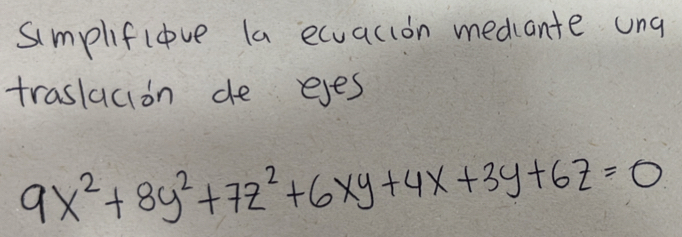 Simplifique la ecuación mediante una
traslación de ejes
9x² + 8y² + 7z² + 6xy + 4x + 3y + 6z = 0